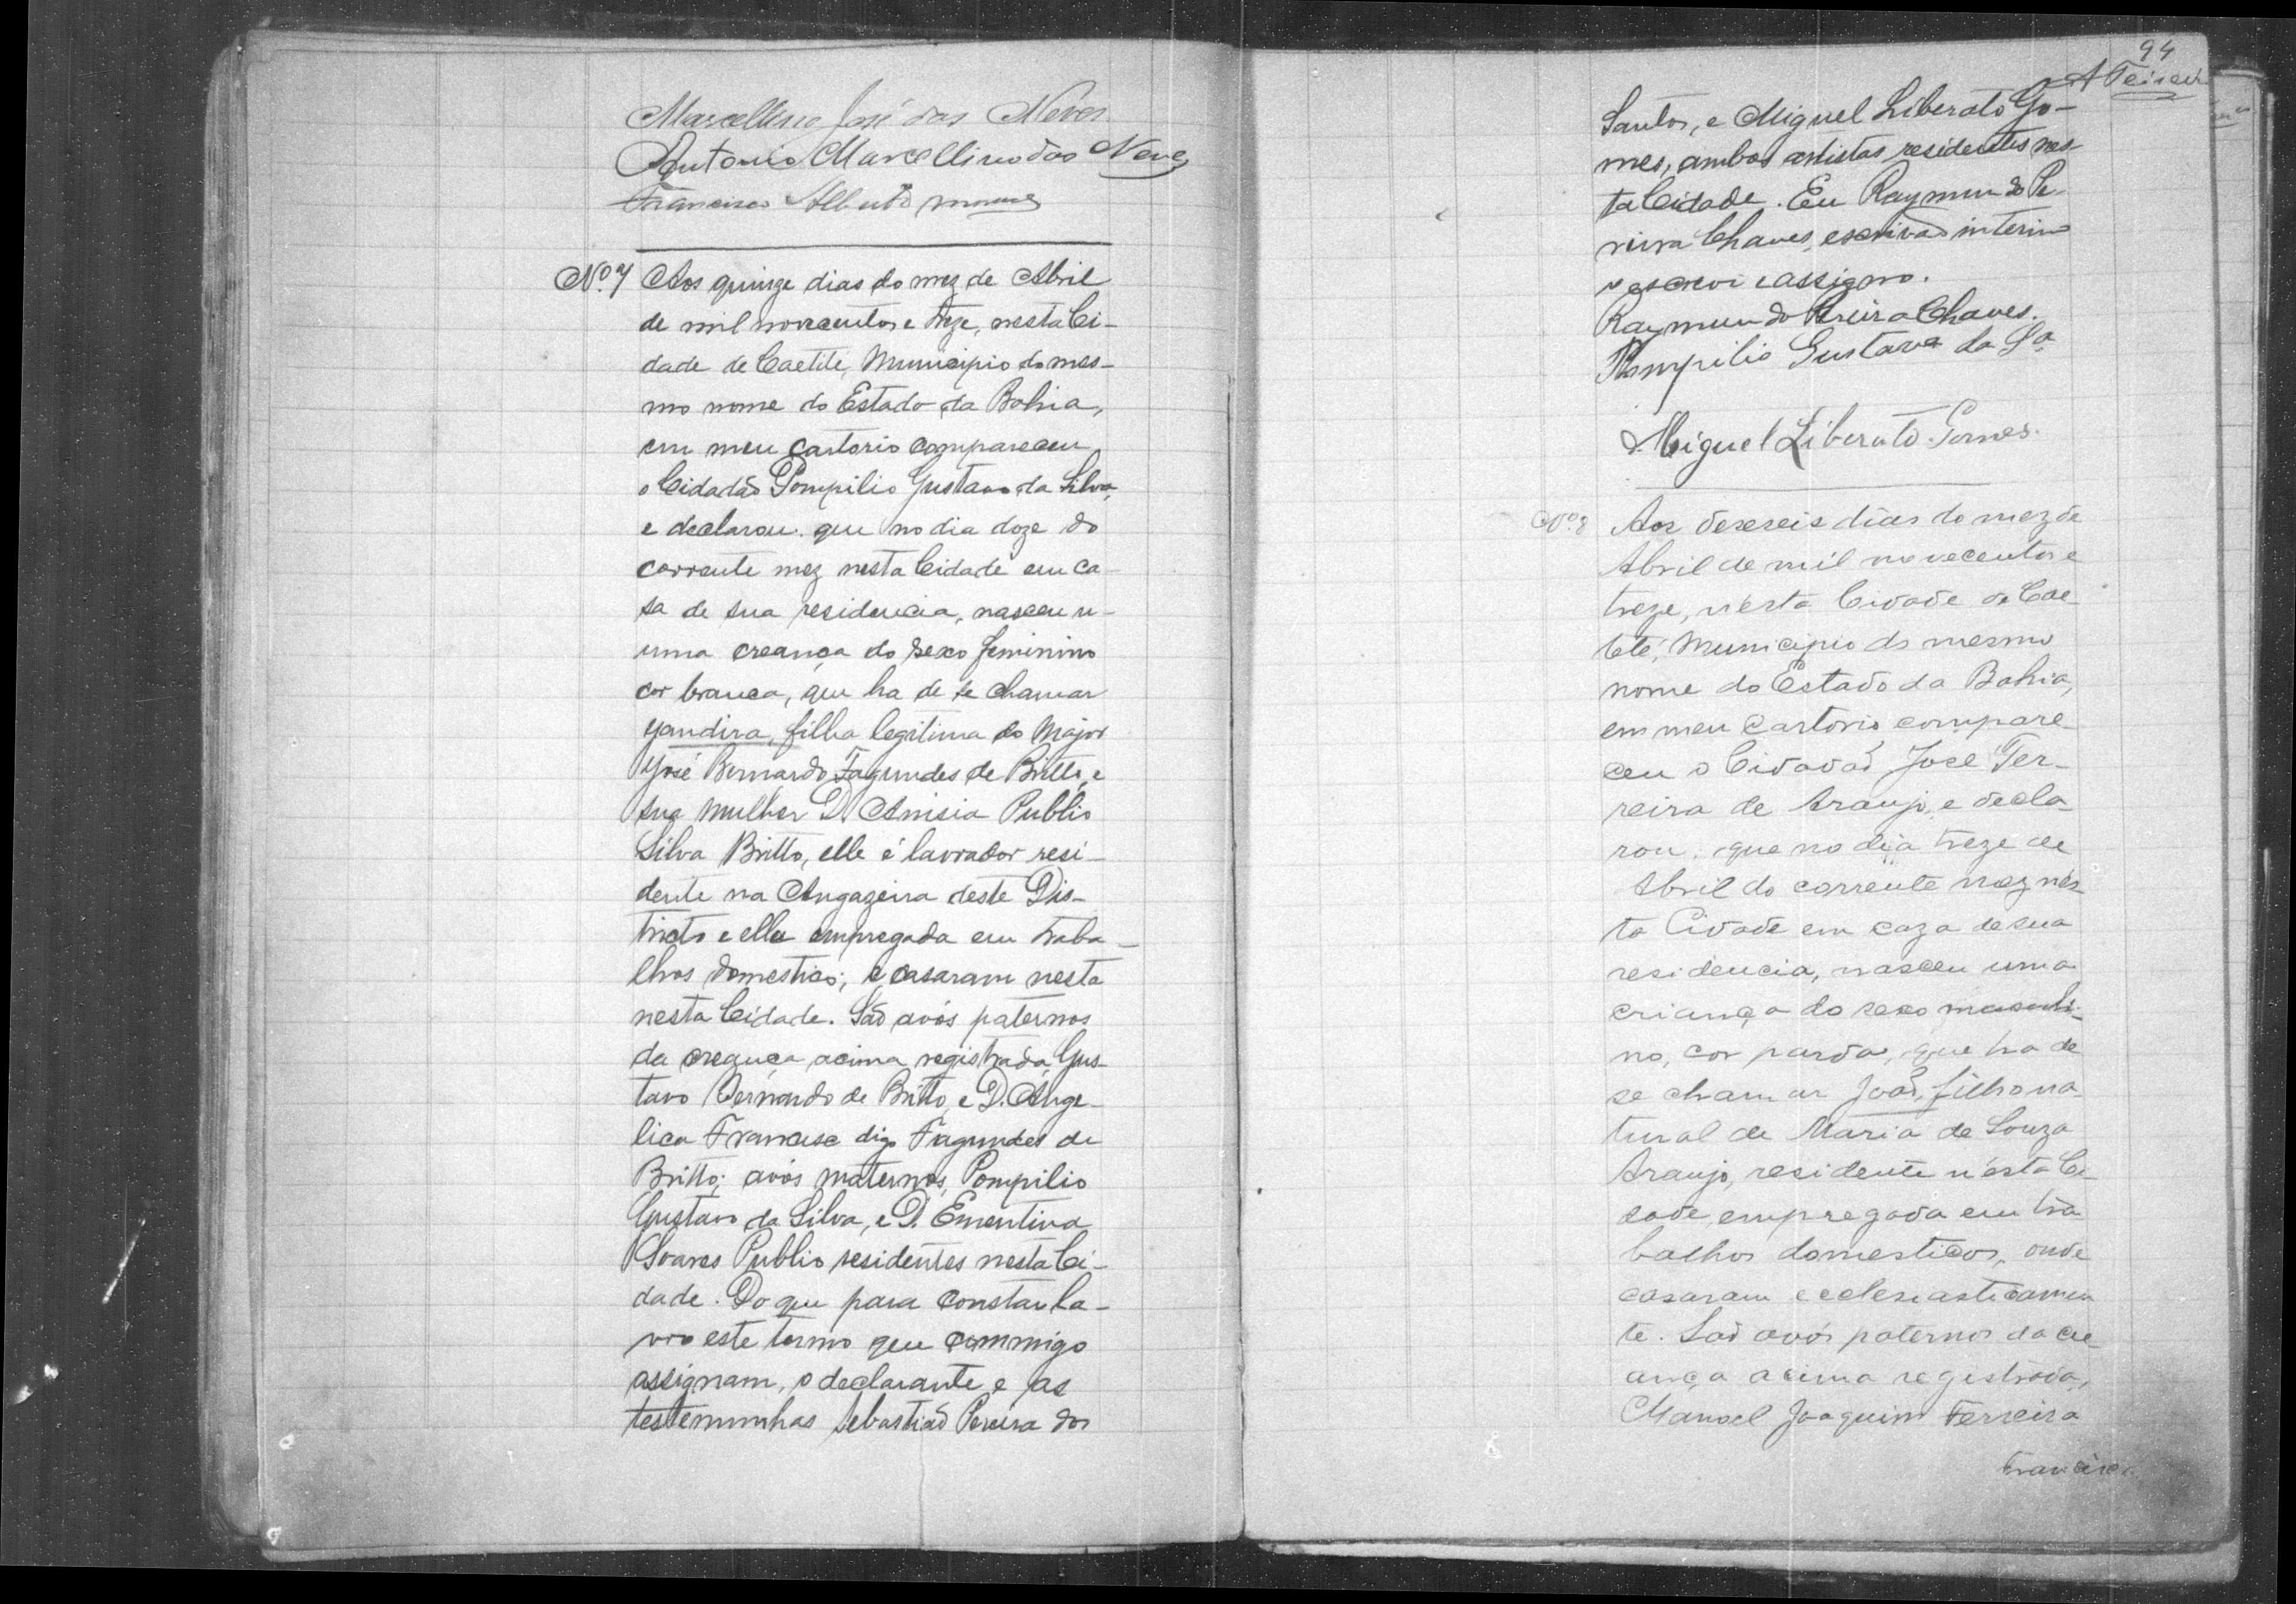 Marcellino José das Neves
Antonio Marcellino das Neves
Francisco Alberto
Nº 7 Aos quinze dias do mez de Abril
de mil novecentos e treze, nesta Ci-
dade de Caetité, Municipio do mes-
mo nome do Estado da Bahia,
em meu cartorio compareceu
o Cidadão Pompilio Gustavo da Silva,
e declarou. que no dia doze do
corrente mez nesta Cidade em ca-
sa de sua residencia, nasceu u-
uma creança do sexo feminino
cor branca, que ha de se chamar
Yandira, filha legitima do Major
José Bernardo Fagundes de Britto, e
sua mulher D. Anisia Publio
Silva Britto, elle é lavrador resi-
dente na Angazeira deste Dis-
tricto e ella empregada em traba-
lhos domesticos; e casaram nesta
nesta Cidade. São avós paternos
da creança acima registrada, Gus-
tavo Bernardo de Britto, e D. Ange-
lica Francisc digo Fagundes de
Britto; avós maternos, Pompilio
Gustavo da Silva, e D. Ementina
Soares Publio residentes nesta Ci-
dade. Do que para constar la-
vro este termo que commigo
assignam, o declarante e as
testemunhas Sebastião Pereira dos
94
A Teixeira
Santos, e Miguel Liberato Go-
mes, ambos artistas residentes nes
ta Cidade. Eu Raymundo Pe-
reira Chaves, escrivão interino
o escrevi e assigno.
Raymundo Pereira Chaves.
Pompilio Gustavo da Sa
Miguel Liberato Gomes.
Nº 8 Aos deseseis dias do mez de
Abril de mil novecentos e
treze, n'esta Cidade de Cae-
teté, Municipio do mesmo
nome do Estado da Bahia,
em meu cartorio compare-
ceu o Cidadão José Fer-
reira de Araujo, e decla-
rou. que no dia treze de
Abril do corrente mez nes
ta Cidade em caza de sua
residencia, nasceu uma
criança do sexo masculi-
no, cor parda, que ha de
se chamar João, filho na-
tural de Maria de Souza
Araujo, residente n'esta Ci-
dade, empregada em tra-
balhos domesticos, onde
casaram ecclesiasticamen
te. São avós paternos da cre
ança acima registrada,
Manoel Joaquim Ferreira